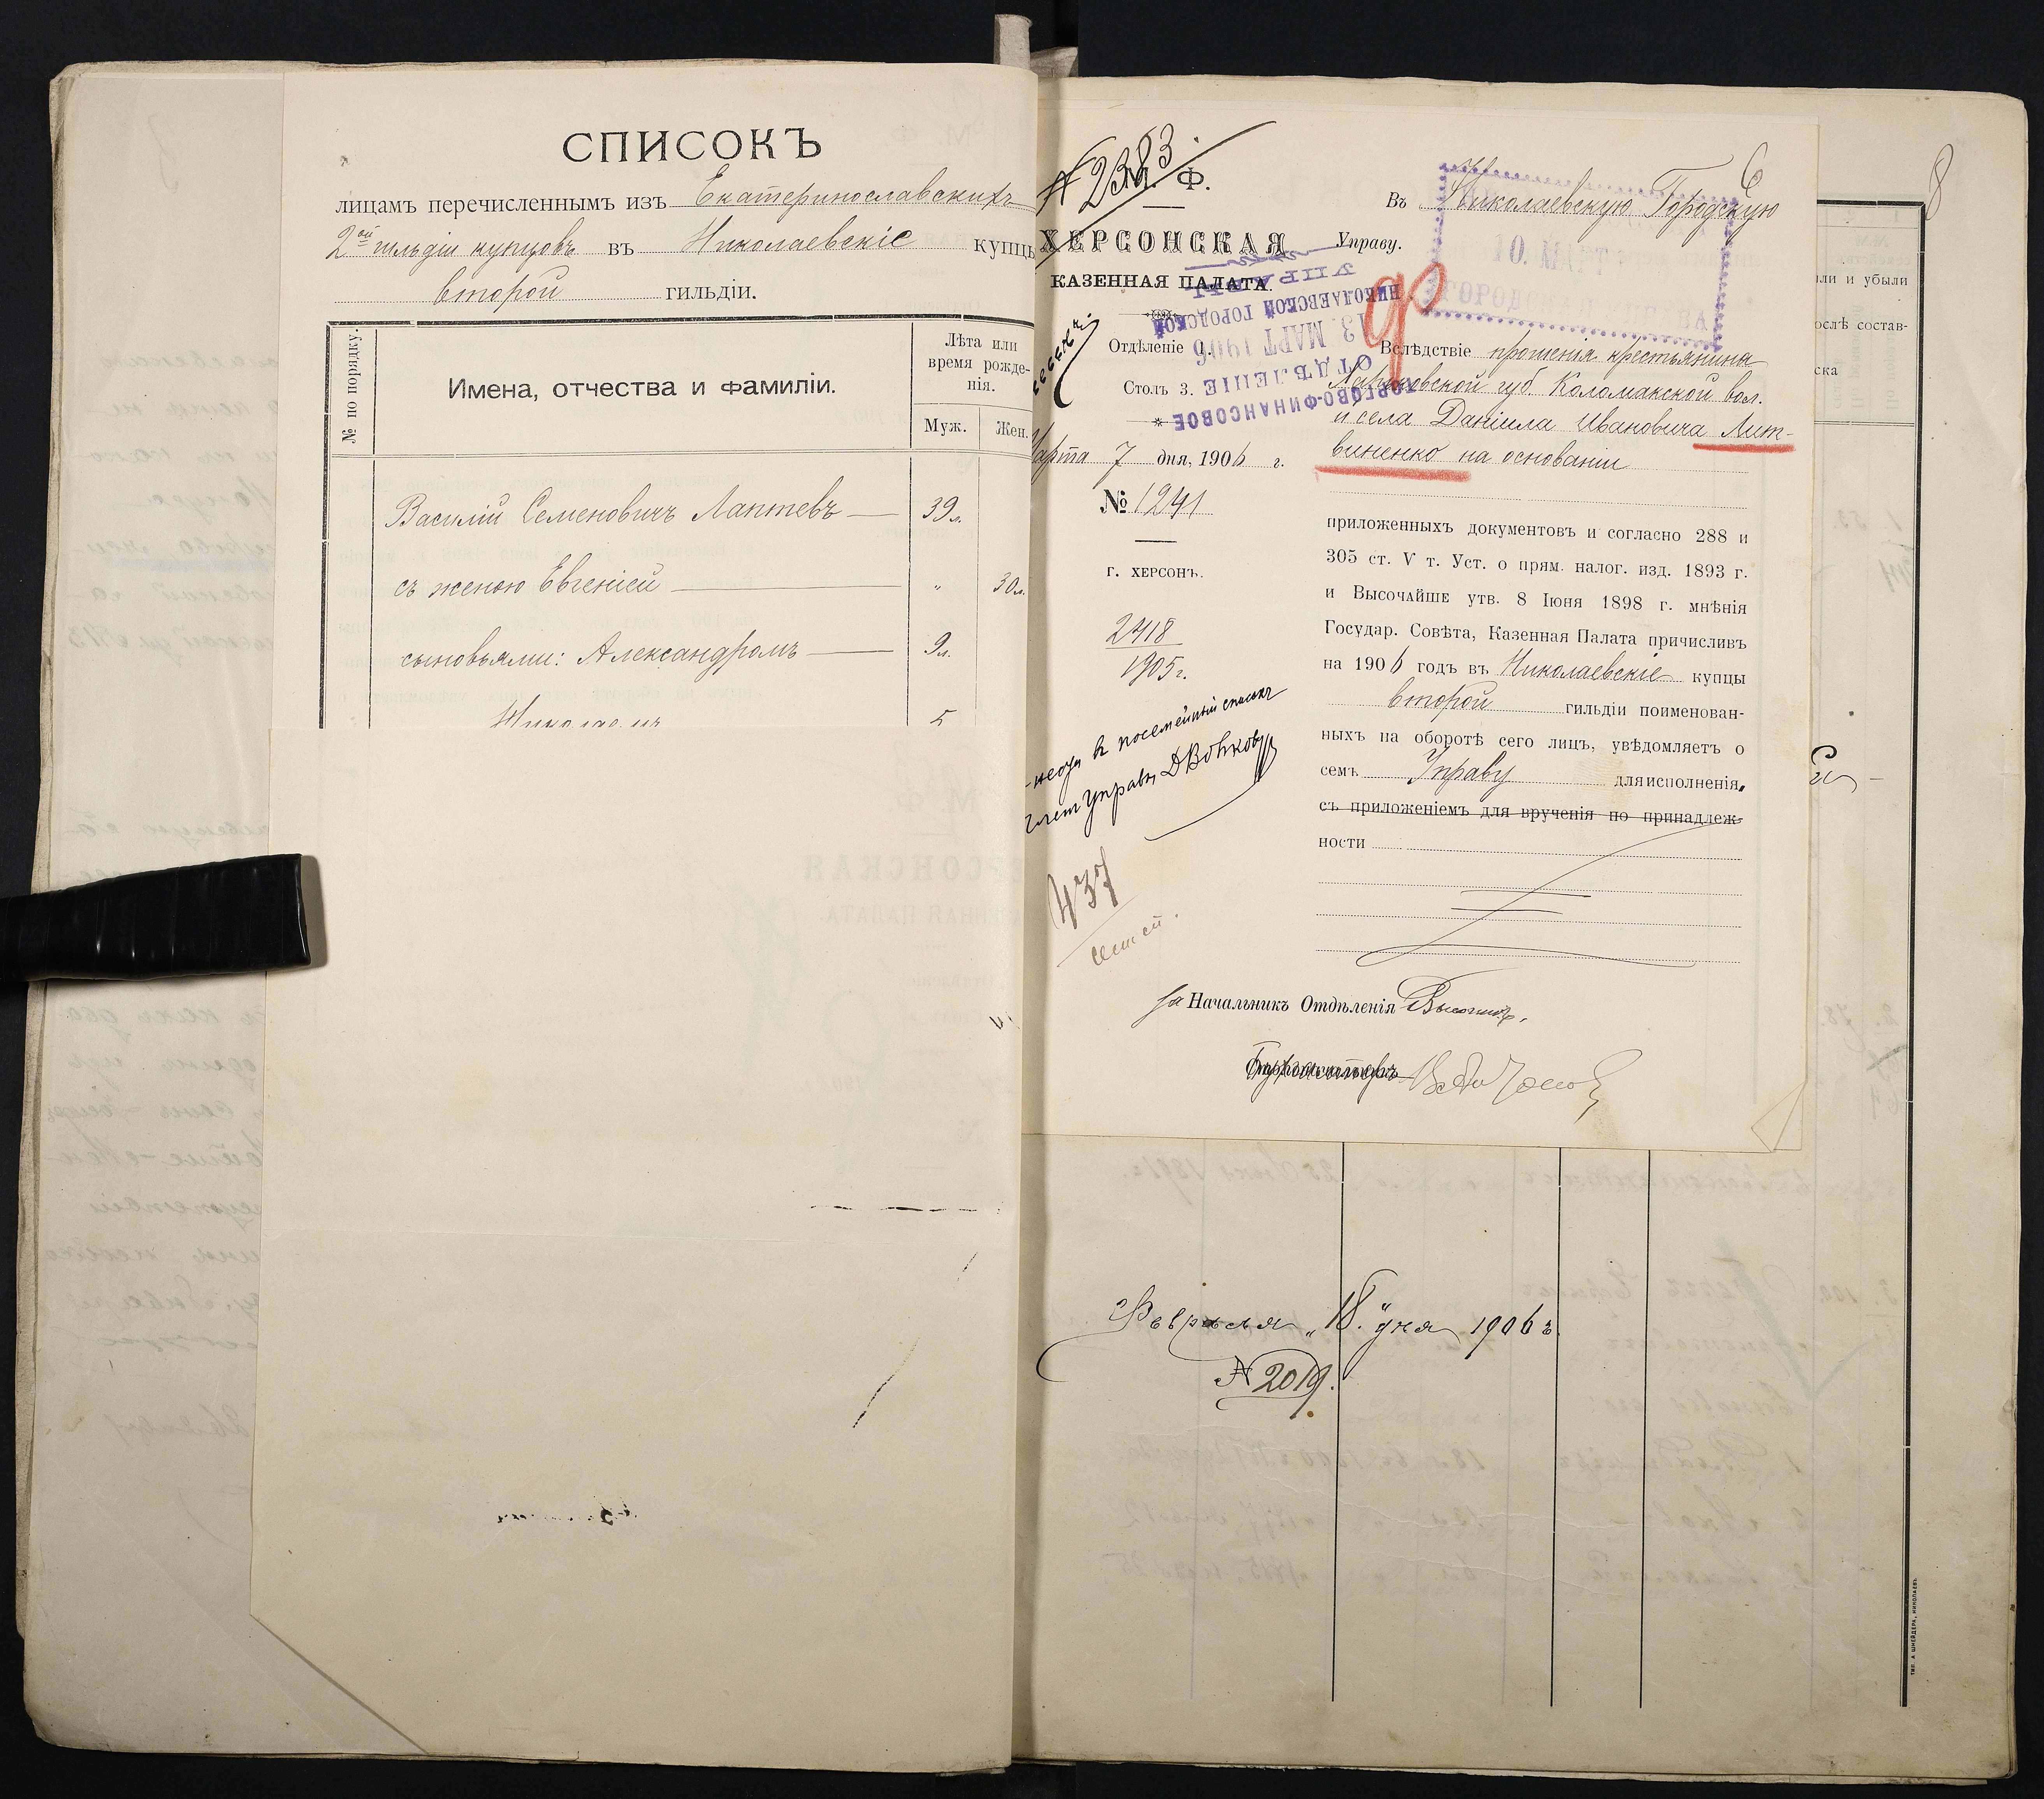 СПИСОКЪ
лицамъ перечисленнымъ изъ Екатеринославскихъ
2ой гильдіи купцовъ въ Николаевскіе купцы
второй гильдіи.
№ по порядку.
Имена, отчества и фамиліи.
Лѣта или
время рожде-
нія.
Муж.
Жен.
Василій Семеновичъ Лаптевъ — 39 л.
съ женою Евгеніей — " 30 л.
сыновьями: Александромъ — 9 л.
Николаемъ 5
№ 2383.
М. Ф.
ХЕРСОНСКАЯ
КАЗЕННАЯ ПАЛАТА.
Отдѣленіе
Столъ 3.
Марта 7 дня, 1906 г.
№ 1241
г. ХЕРСОНЪ.
2418
1905 г.
въ посемейный списокъ
Членъ Управы
437
6
Въ Николаевскую Городскую
Управу.
10. МАРТ
ГОРОДСКАЯ УПРАВА
ТОРГОВО-ФИНАНСОВОЕ
ОТДѢЛЕНІЕ
13. МАРТ 1906
НИКОЛАЕВСКОЙ ГОРОДСКОЙ
УПРАВЫ
Вслѣдствіе прошенія крестьянина
Харьковской губ. Коломакской вол.
и села Даніила Ивановича Лит-
виненко на основаніи
приложенныхъ документовъ и согласно 288 и
305 ст. V т. Уст. о прям. налог. изд. 1893 г.
и Высочайше утв. 8 Іюня 1898 г. мнѣнія
Государ. Совѣта, Казенная Палата причисливъ
на 1906 годъ въ Николаевскіе купцы
второй гильдіи поименован-
ныхъ на оборотѣ сего лицъ, увѣдомляетъ о
семъ Управу для исполненія,
съ приложеніемъ для врученія по принадлеж-
ности
за Начальникъ Отдѣленія
8
или и убыли
послѣ состав-
ска
Февраля „18" дня 1906 г.
№ 2019.
ТИП. А ШНЕЙДЕРА, НИКОЛАЕВЪ